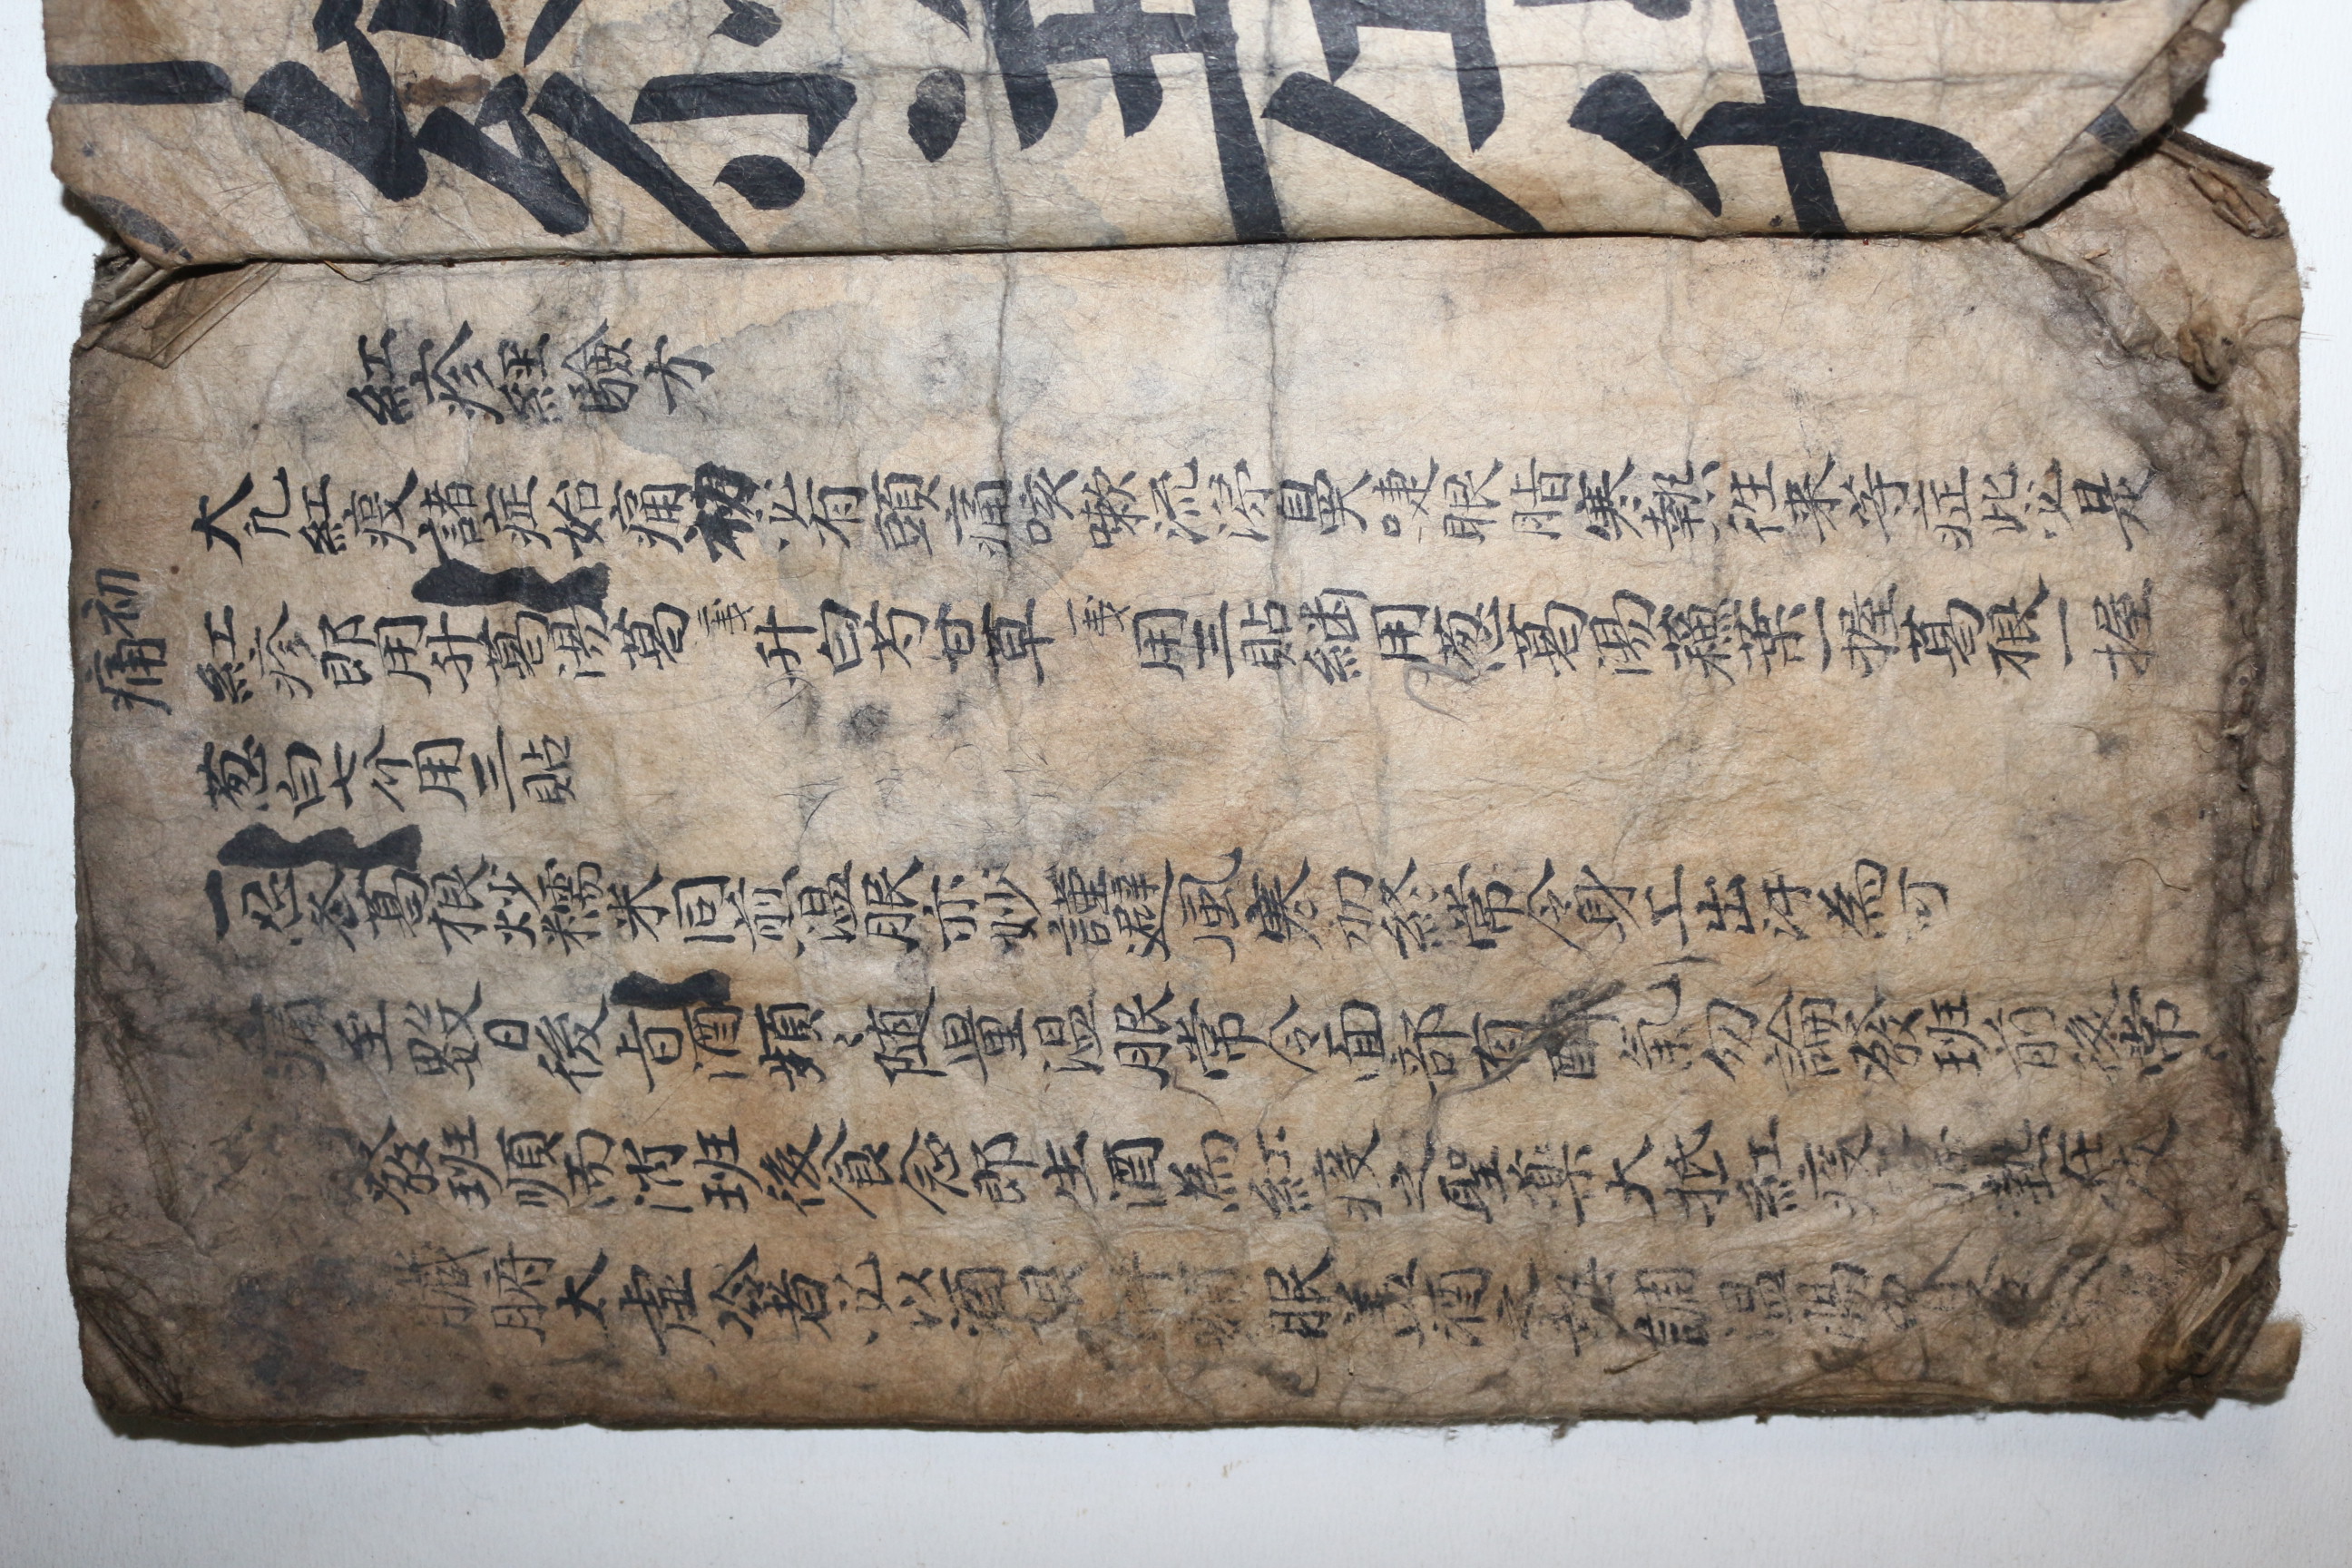 紅疹經驗方
大凡紅疫諸症始痛初必有頭痛咳嗽流涕鼻嚏眼脂寒熱徃来等症此必是
初痛
紅疹郎用升葛湯葛二戔升白芍甘草一戔用三貼継用葱葛湯蘓葉一握葛根一握
葱白七介用三貼
一忍冬葛根炒糯米同煎温服亦妙謹避風寒初終常令身工出汗為可
痛至數日後旨酒頻〻随量温服常令面部有酣氣勿論發班前後常〻
發班順而消班後食念郎生酒為紅疫之聖藥大抵紅疫熱在皮
臓腑太虚冷者必以酒服盖酒之調温腸胃